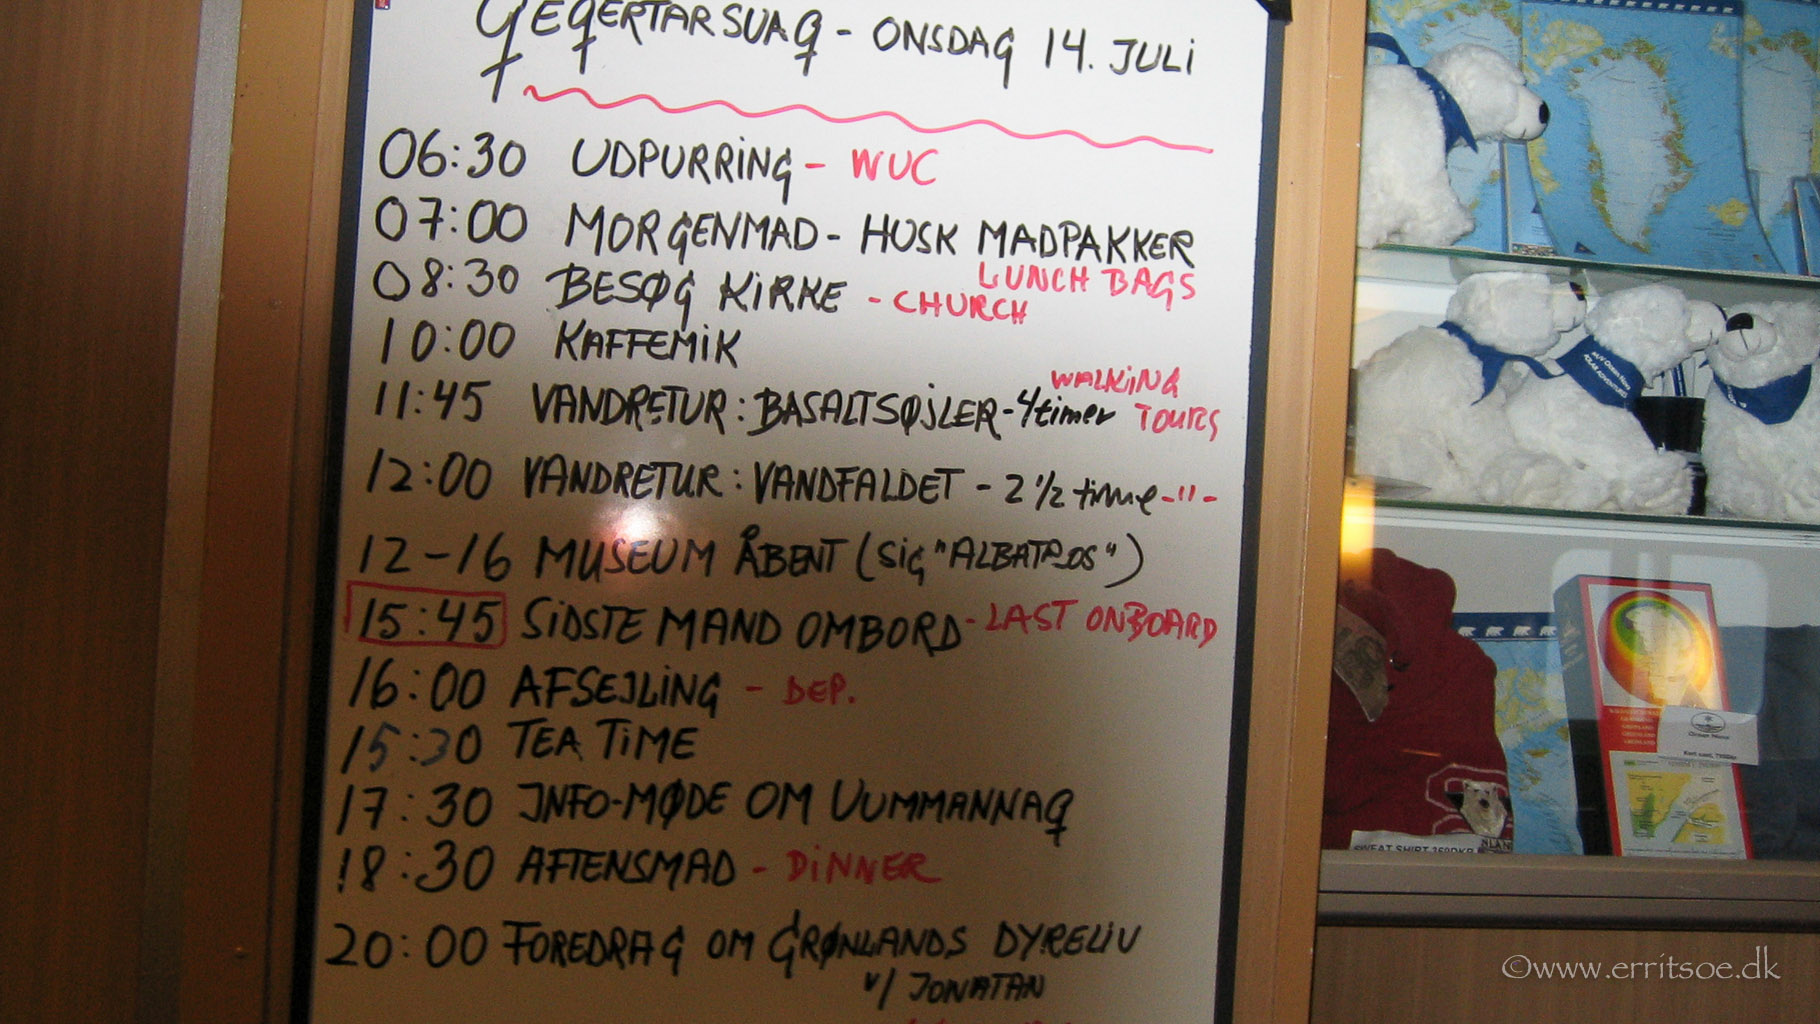 QEQERTARSUAQ - ONSDAG 14. JULI
06:30 UDPURRING - WUC
07:00 MORGENMAD - HUSK MADPAKKER
LUNCH BAGS
08:30 BESØG KIRKE - CHURCH
10:00 KAFFEMIK
11:45 VANDRETUR: BASALTSØJLER - 4 timer WALKING TOURS
12:00 VANDRETUR: VANDFALDET - 2 1/2 time -"-
12-16 MUSEUM ÅBENT (SIG "ALBATROS")
15:45 SIDSTE MAND OMBORD - LAST ONBOARD
16:00 AFSEJLING - DEP.
15:30 TEA TIME
17:30 INFO-MØDE OM UUMMANNAQ
18:30 AFTENSMAD - DINNER
20:00 FOREDRAG OM GRØNLANDS DYRELIV
v/ JONATAN
SWEAT SHIRT
Ocean Nova
©www.erritsoe.dk